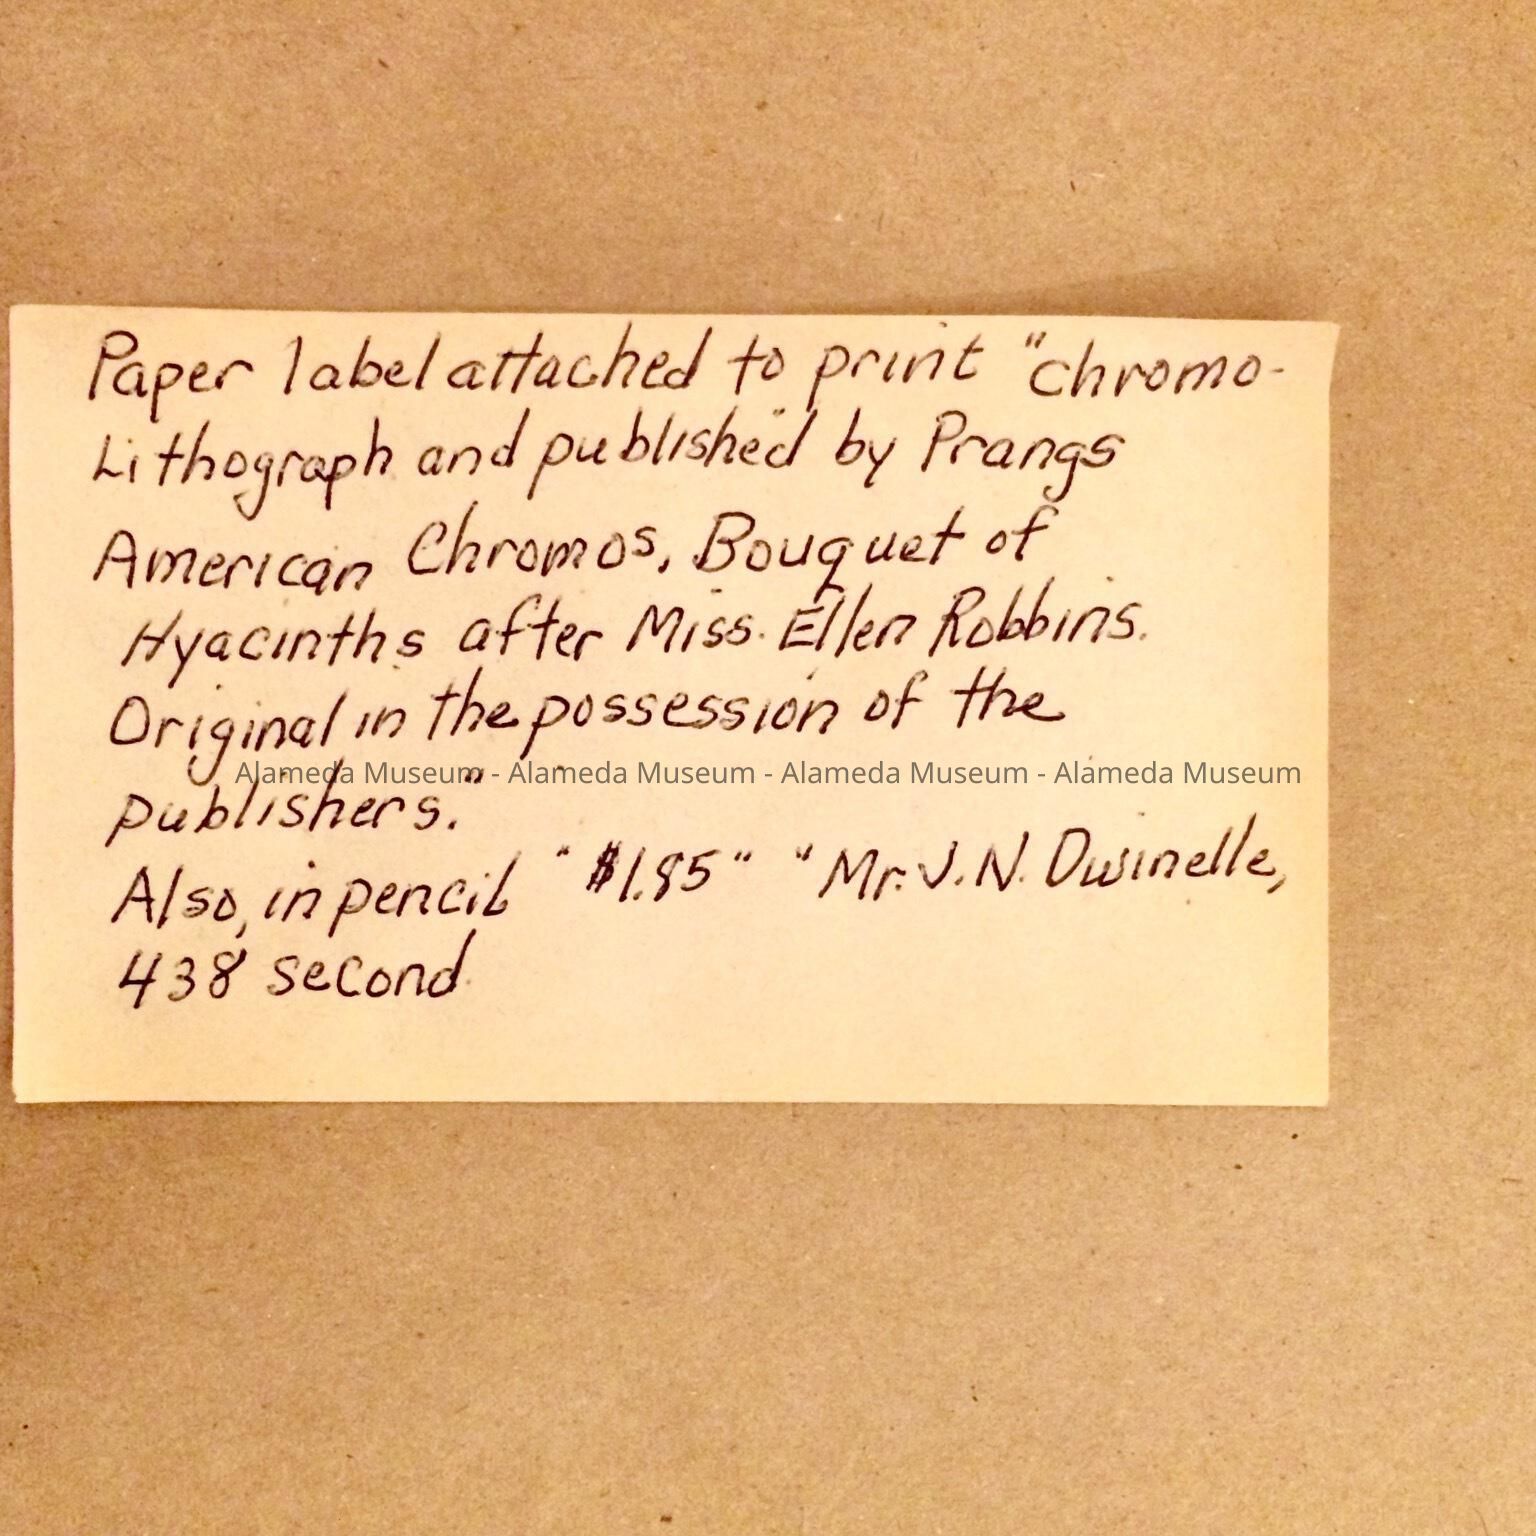 Paper label attached to print "chromo-
Lithograph and published by Prangs
American Chromos, Bouquet of
Hyacinths after Miss. Ellen Robbins.
Original in the possession of the
Alameda Museum - Alameda Museum - Alameda Museum - Alameda Museum
publishers."
Also, in pencil "$1.85" "Mr. J. N. Dwinelle,
438 second